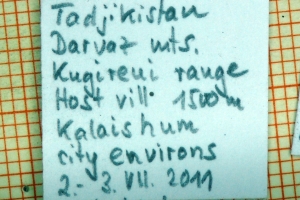 Tadjikistan
Darvaz mts.
Kugireui range
Host vill. 1500m
Kalaishum
city environs
2.-3. VII. 2011